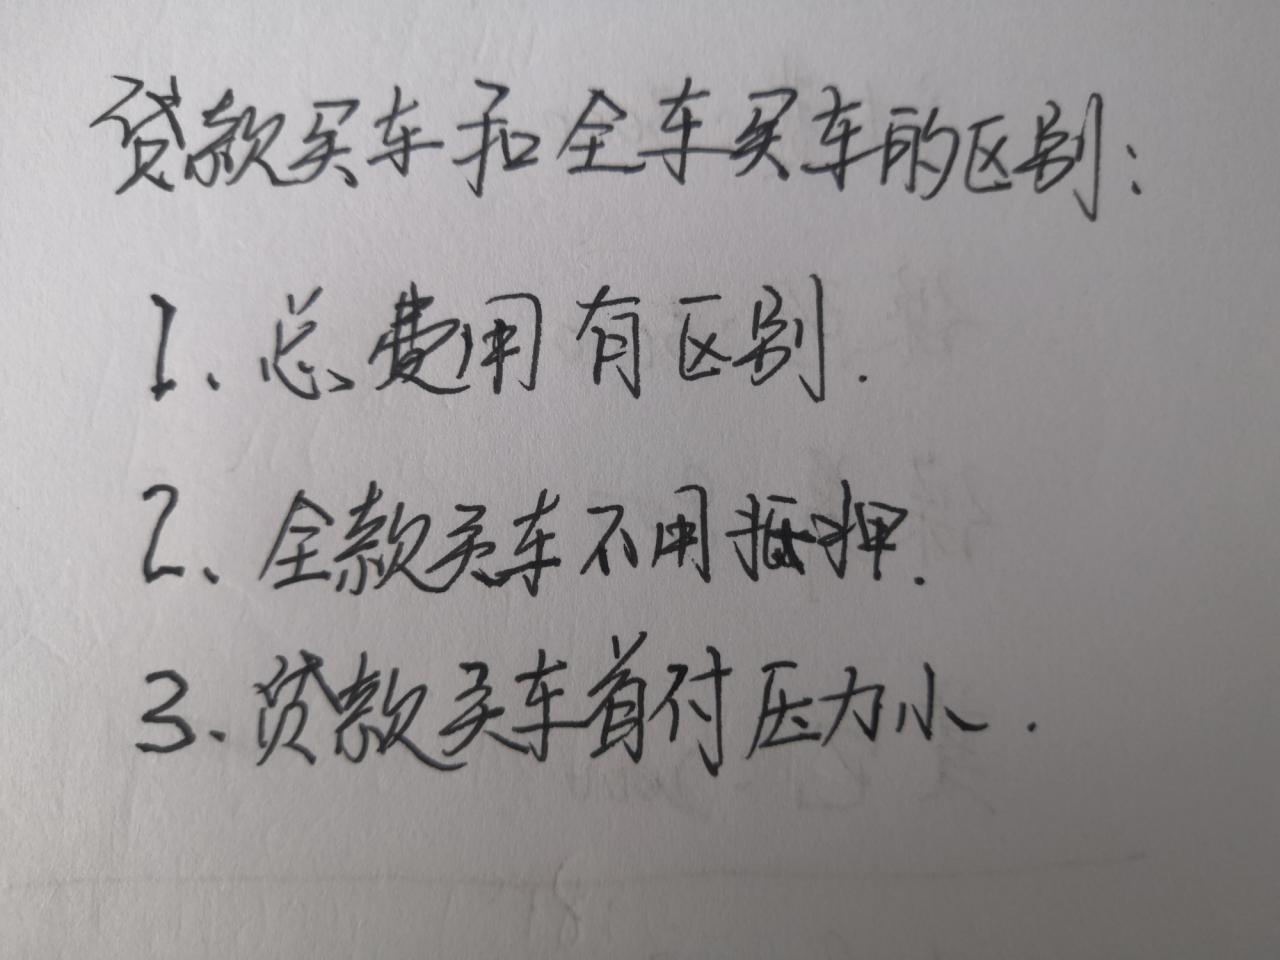 贷款买车和全车买车的区别:
1、总费用有区别.
2、全款买车不用抵押.
3.贷款买车首付压力小.